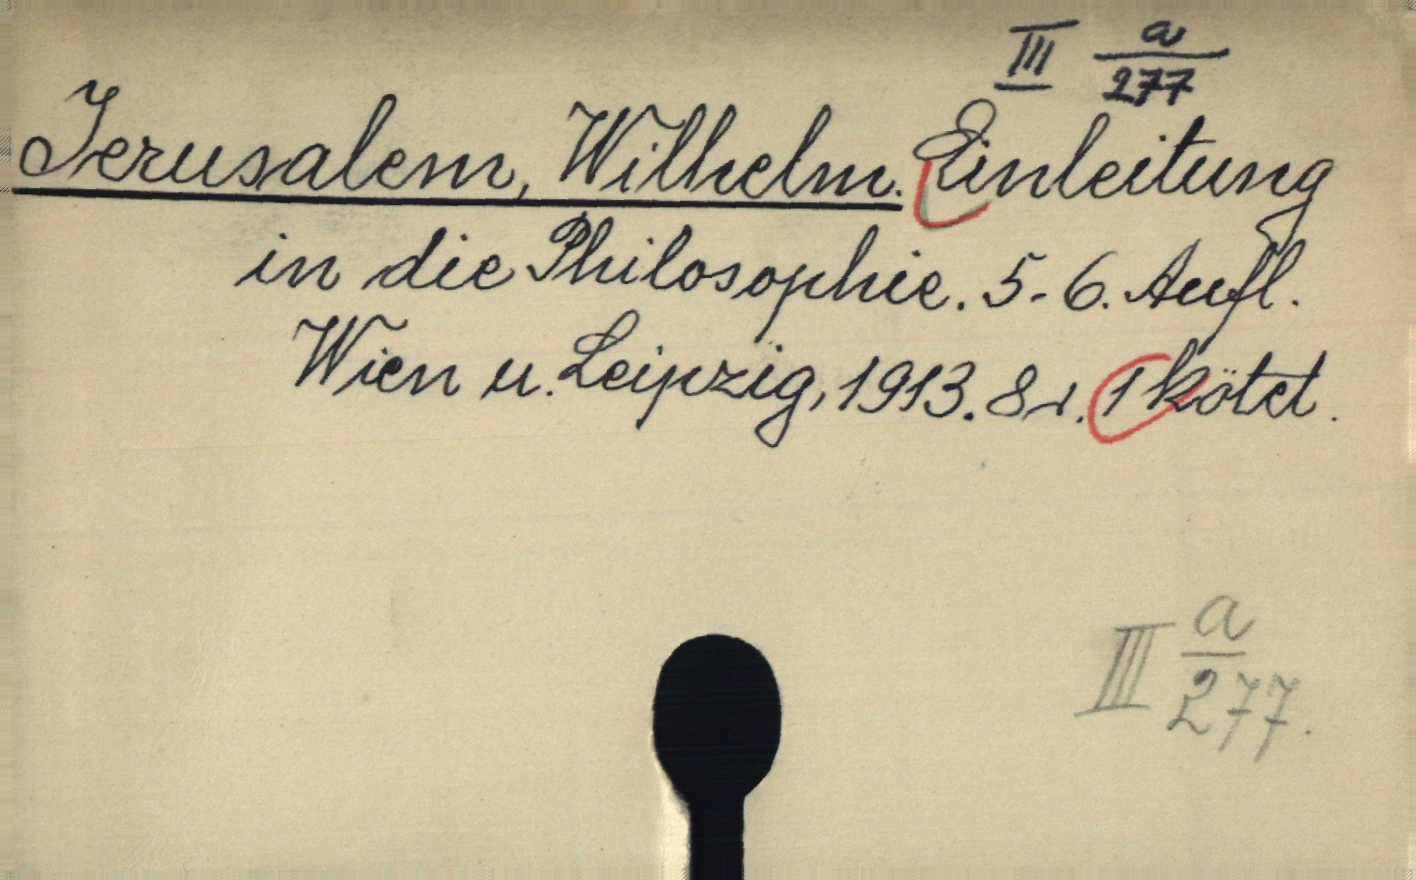 III a/277
Jerusalem, Wilhelm. Einleitung
in die Philosophie. 5-6. Aufl.
Wien u. Leipzig, 1913. 8r. 1 kötet.
III a/277.